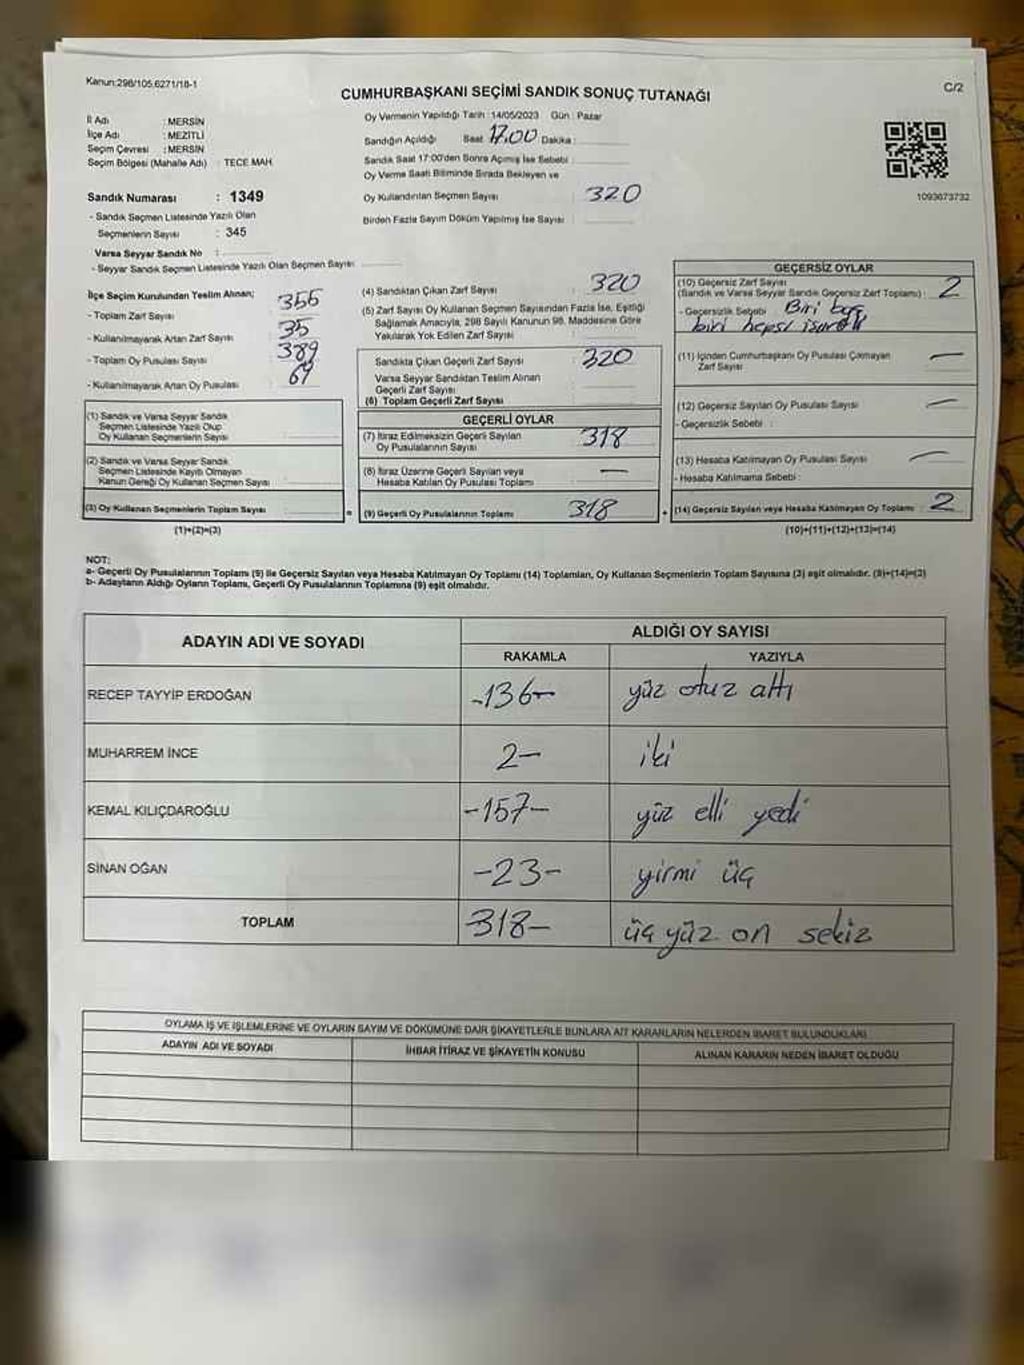 Kanun:298/105,6271/18-1
C/2
CUMHURBAŞKANI SEÇİMİ SANDIK SONUÇ TUTANAĞI
İl Adı : MERSİN
İlçe Adı : MEZİTLİ
Seçim Çevresi : MERSİN
Seçim Bölgesi (Mahalle Adı) : TECE MAH.
Oy Vermenin Yapıldığı Tarih : 14/05/2023 Gün : Pazar
Sandığın Açıldığı Saat : 17.00 Dakika :
Sandık Saat 17:00'den Sonra Açılmış İse Sebebi :
Oy Verme Saati Bitiminde Sırada Bekleyen ve
Oy Kullandırılan Seçmen Sayısı : 320
Birden Fazla Sayım Döküm Yapılmış İse Sayısı
1093673732
Sandık Numarası : 1349
- Sandık Seçmen Listesinde Yazılı Olan
Seçmenlerin Sayısı : 345
Varsa Seyyar Sandık No :
- Seyyar Sandık Seçmen Listesinde Yazılı Olan Seçmen Sayısı
İlçe Seçim Kurulundan Teslim Alınan;
- Toplam Zarf Sayısı 355
- Kullanılmayarak Artan Zarf Sayısı 35
- Toplam Oy Pusulası Sayısı 389
- Kullanılmayarak Artan Oy Pusulası 69
(1) Sandık ve Varsa Seyyar Sandık
Seçmen Listesinde Yazılı Olup
Oy Kullanan Seçmenlerin Sayısı
(2) Sandık ve Varsa Seyyar Sandık
Seçmen Listesinde Kayıtlı Olmayan
Kanun Gereği Oy Kullanan Seçmen Sayısı
(3) Oy Kullanan Seçmenlerin Toplam Sayısı =
(1)+(2)=(3)
(4) Sandıktan Çıkan Zarf Sayısı : 320
(5) Zarf Sayısı Oy Kullanan Seçmen Sayısından Fazla İse, Eşitliği
Sağlamak Amacıyla, 298 Sayılı Kanunun 98. Maddesine Göre
Yakılarak Yok Edilen Zarf Sayısı
Sandıkta Çıkan Geçerli Zarf Sayısı 320
Varsa Seyyar Sandıktan Teslim Alınan
Geçerli Zarf Sayısı
(6) Toplam Geçerli Zarf Sayısı
GEÇERLİ OYLAR
(7) İtiraz Edilmeksizin Geçerli Sayılan
Oy Pusulalarının Sayısı 318
(8) İtiraz Üzerine Geçerli Sayılan veya
Hesaba Katılan Oy Pusulası Toplamı —
(9) Geçerli Oy Pusulalarının Toplamı 318 +
GEÇERSİZ OYLAR
(10) Geçersiz Zarf Sayısı
(Sandık ve Varsa Seyyar Sandık Geçersiz Zarf Toplamı) : 2
- Geçersizlik Sebebi : Biri boş
biri hepsi işaretli
(11) İçinden Cumhurbaşkanı Oy Pusulası Çıkmayan
Zarf Sayısı —
(12) Geçersiz Sayılan Oy Pusulası Sayısı —
- Geçersizlik Sebebi :
(13) Hesaba Katılmayan Oy Pusulası Sayısı —
- Hesaba Katılmama Sebebi :
(14) Geçersiz Sayılan veya Hesaba Katılmayan Oy Toplamı 2
(10)+(11)+(12)+(13)=(14)
NOT:
a- Geçerli Oy Pusulalarının Toplamı (9) ile Geçersiz Sayılan veya Hesaba Katılmayan Oy Toplamı (14) Toplamları, Oy Kullanan Seçmenlerin Toplam Sayısına (3) eşit olmalıdır. (9)+(14)=(3)
b- Adayların Aldığı Oyların Toplamı, Geçerli Oy Pusulalarının Toplamına (9) eşit olmalıdır.
ADAYIN ADI VE SOYADI
ALDIĞI OY SAYISI
RAKAMLA YAZIYLA
RECEP TAYYİP ERDOĞAN -136- yüz otuz altı
MUHARREM İNCE 2- iki
KEMAL KILIÇDAROĞLU -157- yüz elli yedi
SİNAN OĞAN -23- yirmi üç
TOPLAM 318- üç yüz on sekiz
OYLAMA İŞ VE İŞLEMLERİNE VE OYLARIN SAYIM VE DÖKÜMÜNE DAİR ŞİKAYETLERLE BUNLARA AİT KARARLARIN NELERDEN İBARET BULUNDUKLARI
ADAYIN ADI VE SOYADI İHBAR İTİRAZ VE ŞİKAYETİN KONUSU ALINAN KARARIN NEDEN İBARET OLDUĞU